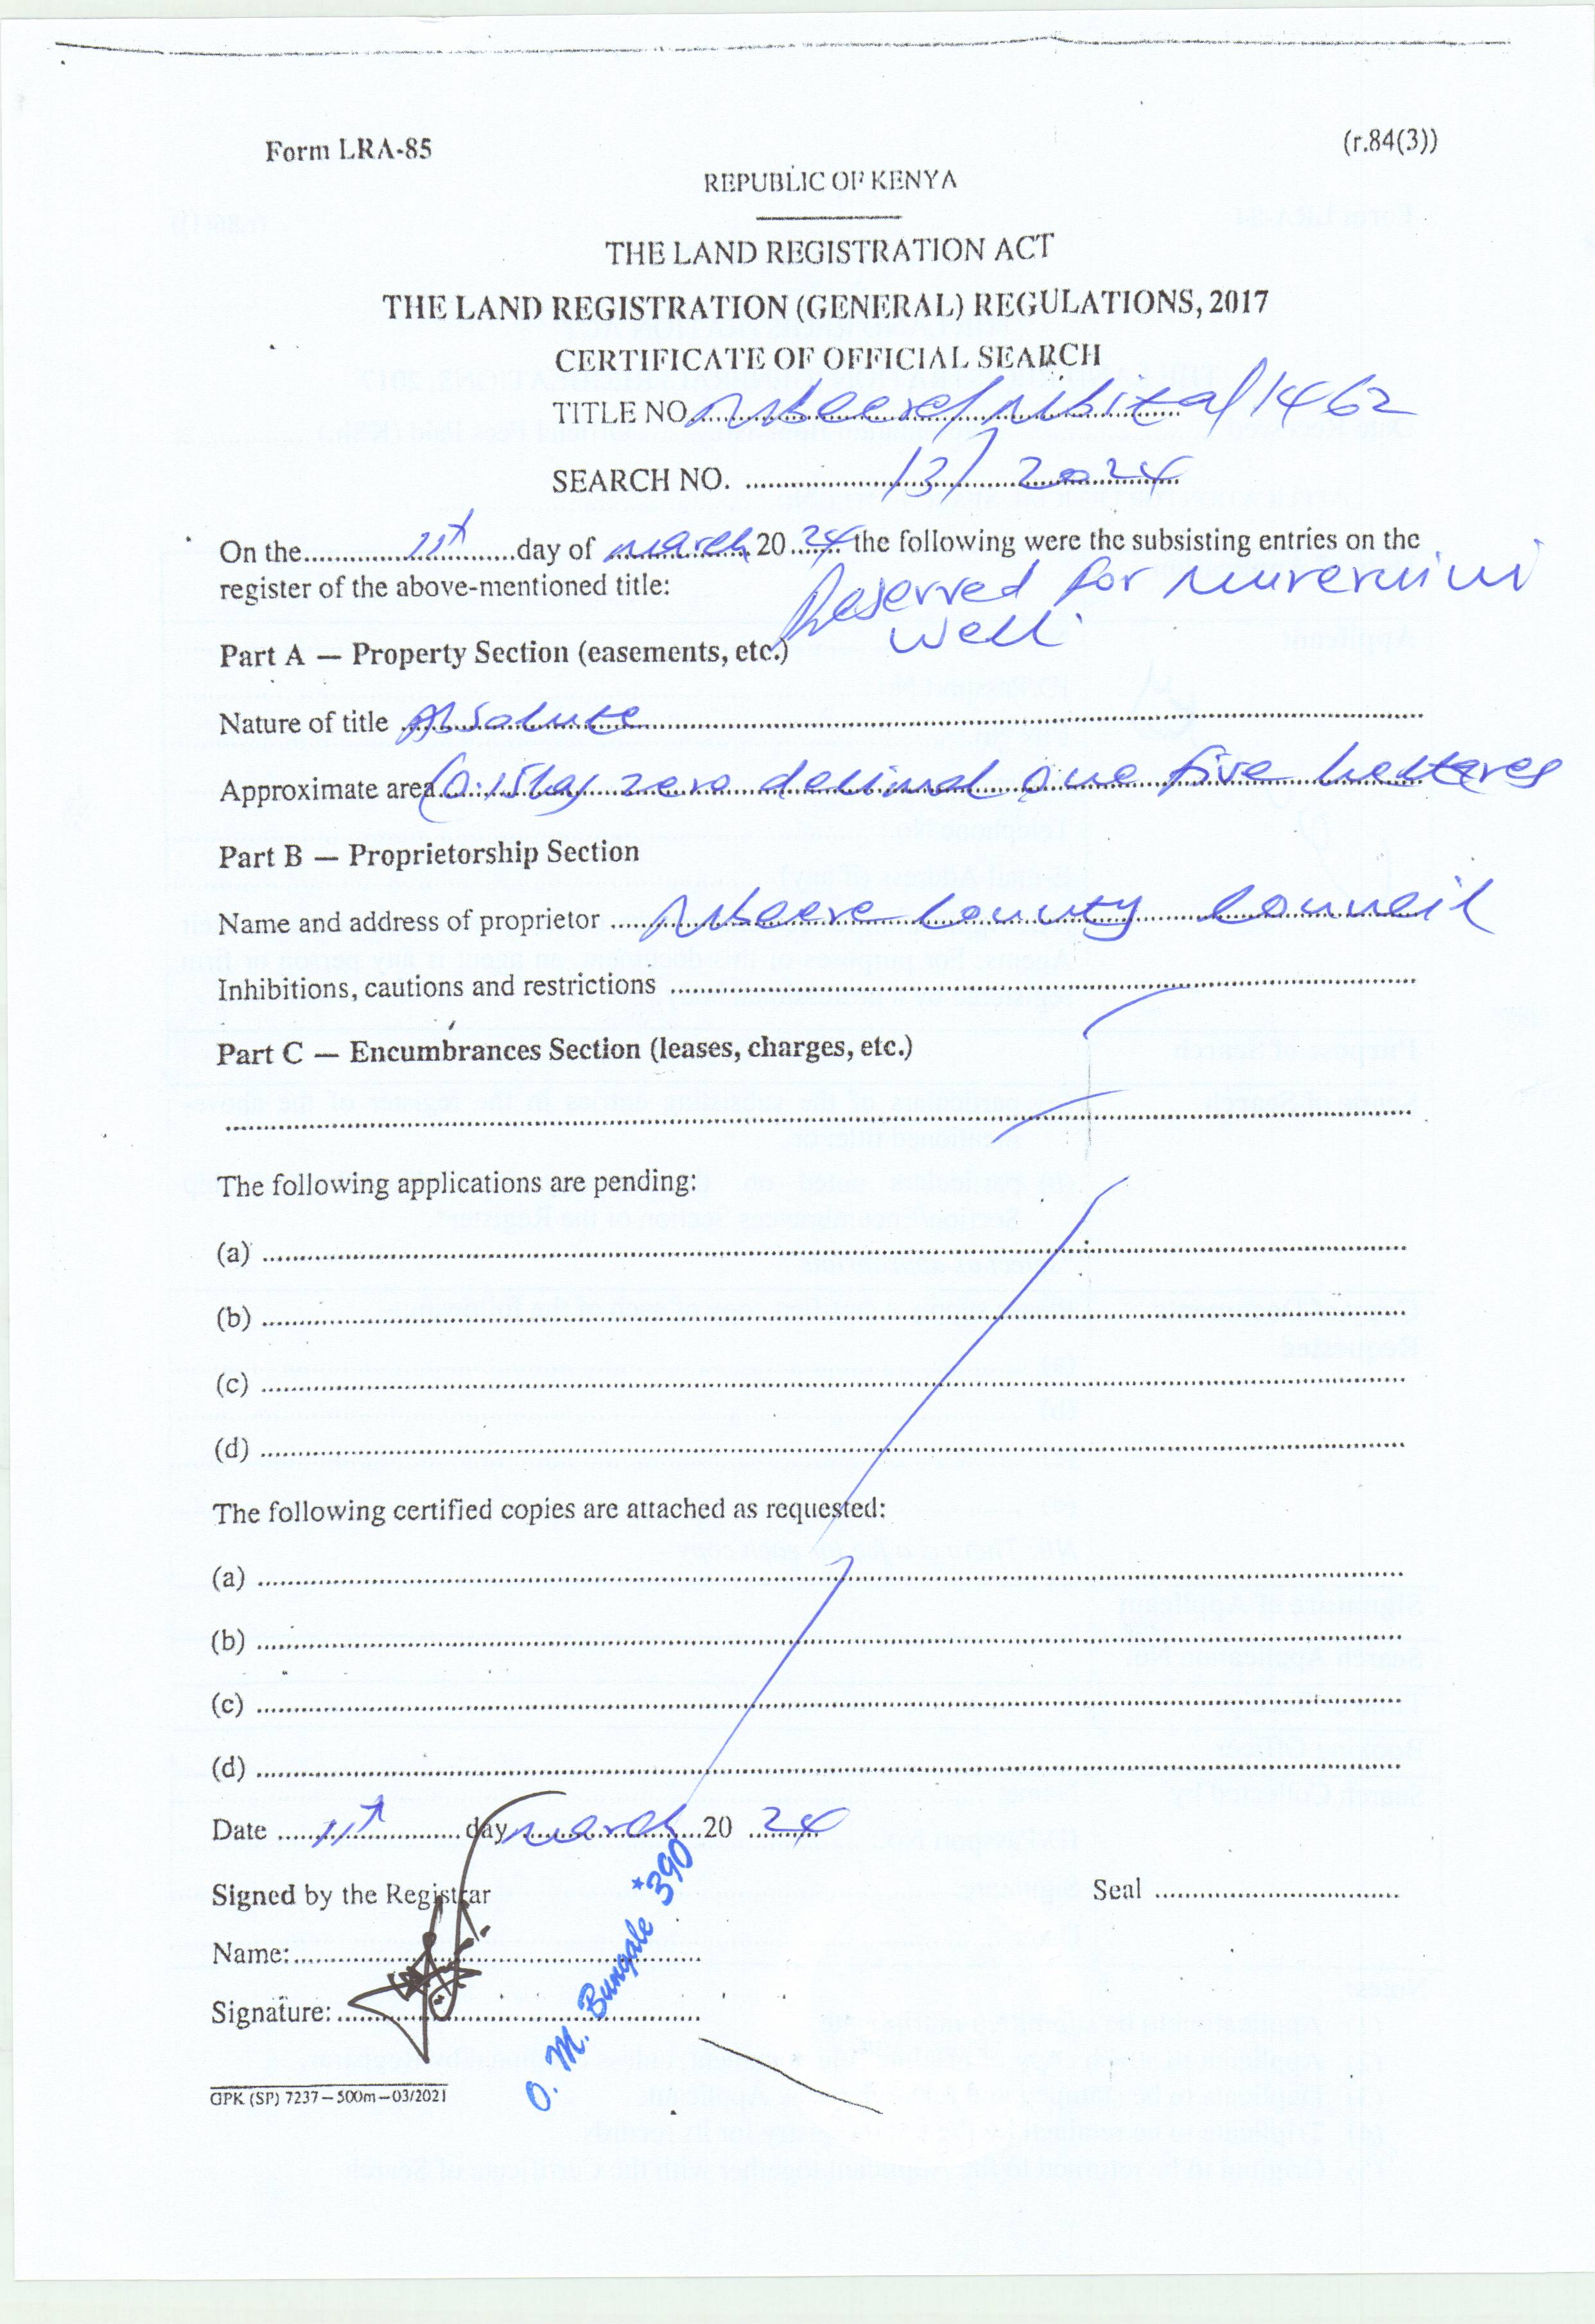 Form LRA-85 (r.84(3))
REPUBLIC OF KENYA
THE LAND REGISTRATION ACT
THE LAND REGISTRATION (GENERAL) REGULATIONS, 2017
CERTIFICATE OF OFFICIAL SEARCH
TITLE NO. Mbeere/Mbita/1462
SEARCH NO. 13/2024
On the 11th day of march 20 24 the following were the subsisting entries on the
register of the above-mentioned title: Reserved for
well
Part A — Property Section (easements, etc.)
Nature of title Absolute
Approximate area (0.15ha) zero decimal one five hectares
Part B — Proprietorship Section
Name and address of proprietor Mbeere County Council
Inhibitions, cautions and restrictions
Part C — Encumbrances Section (leases, charges, etc.)
The following applications are pending:
(a)
(b)
(c)
(d)
The following certified copies are attached as requested:
(a)
(b)
(c)
(d)
Date 11th day march 20 24
Signed by the Registrar Seal
Name:
Signature:
O. M. Bungale *390
GPK (SP) 7237—500m—03/2021